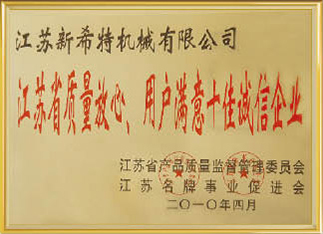 江苏新希特机械有限公司
江苏省质量放心、用户满意十佳诚信企业
江苏省产品质量监督管理委员会
江苏名牌事业促进会
二〇一〇年四月